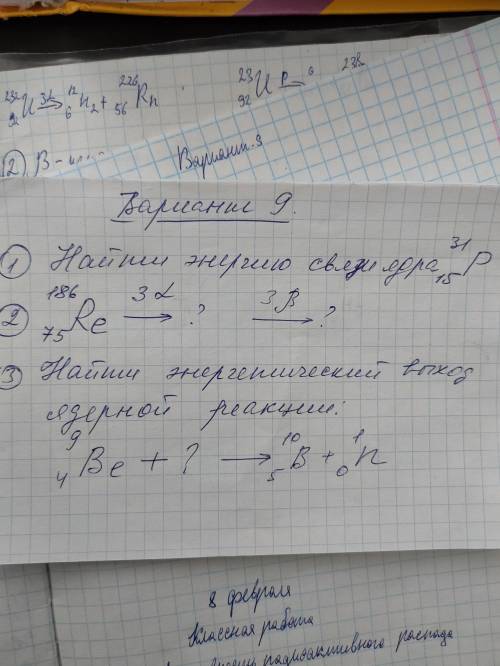 232 92 U 3α → 12 6 n 2 + 226 56 Rn
23 92 U 238
② β-
Вариант 9
Вариант 9.
① Найти энергию связи ядра 31 15 P
② 186 75 Re 3α → ? 3β → ?
③ Найти энергетический выход
ядерной реакции:
9 4 Be + ? → 10 5 B + 1 0 n
8 февраля
Классная работа
радиоактивного распада